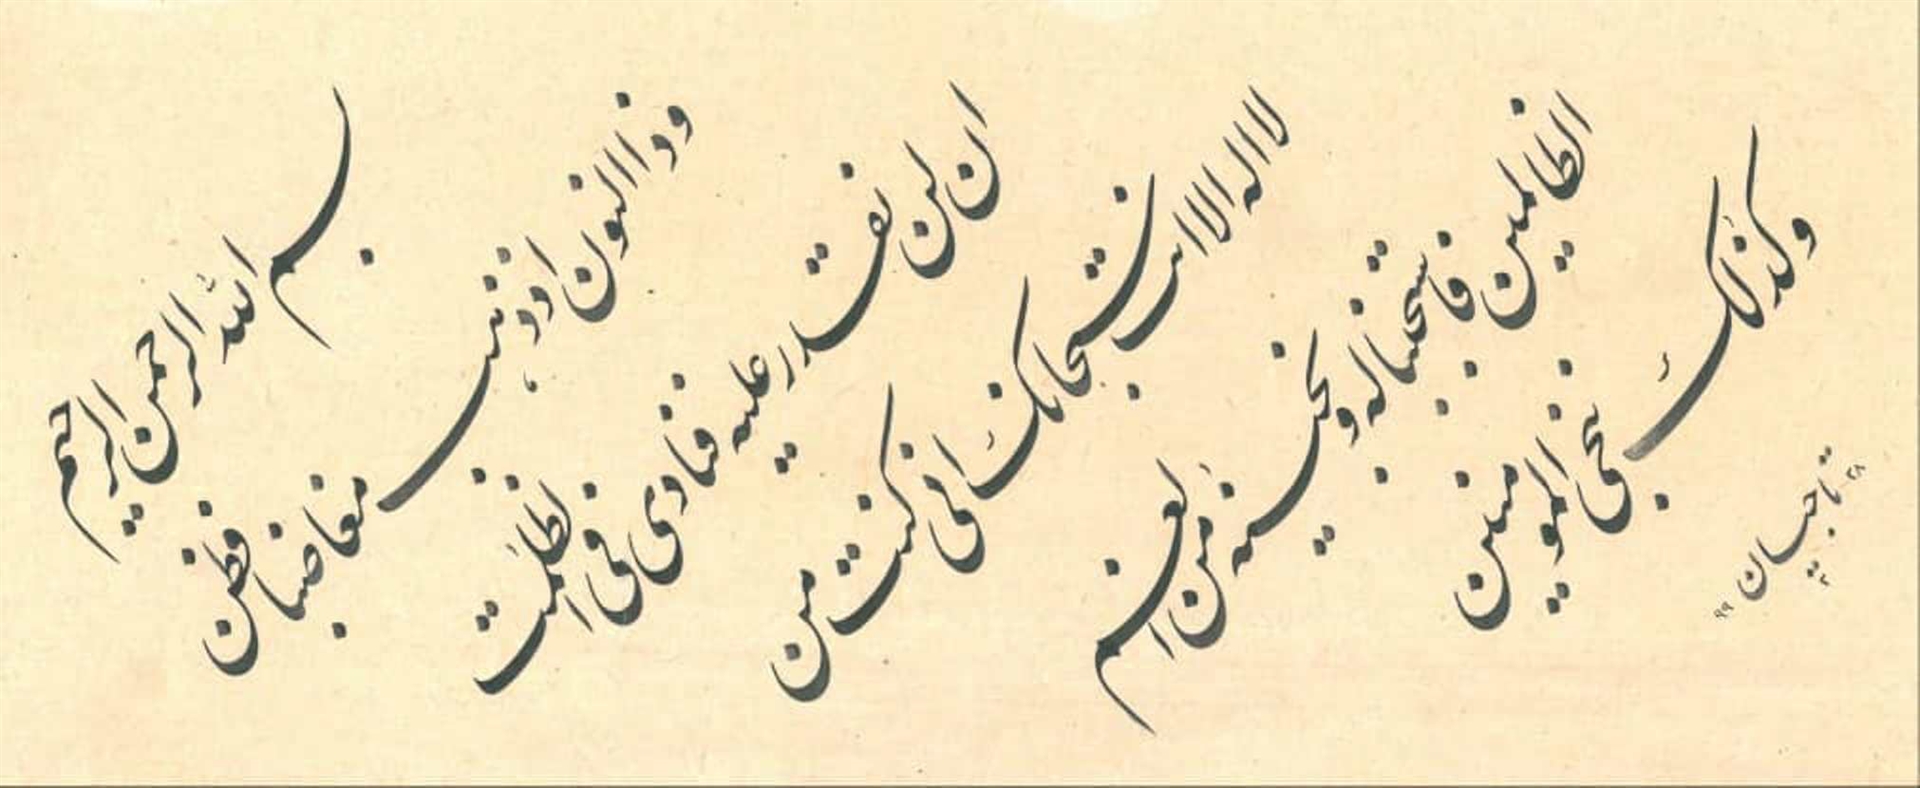 بسم الله الرحمن الرحیم
وذا النون اذ ذهب مغاضبا فظن
ان لن نقدر علیه فنادی فی الظلمت
لا اله الا انت سبحانک انی کنت من
الظالمین فاستجبنا له و نجینه من الغم
وکذلک ننجی المومنین
تاجبان
۹۹